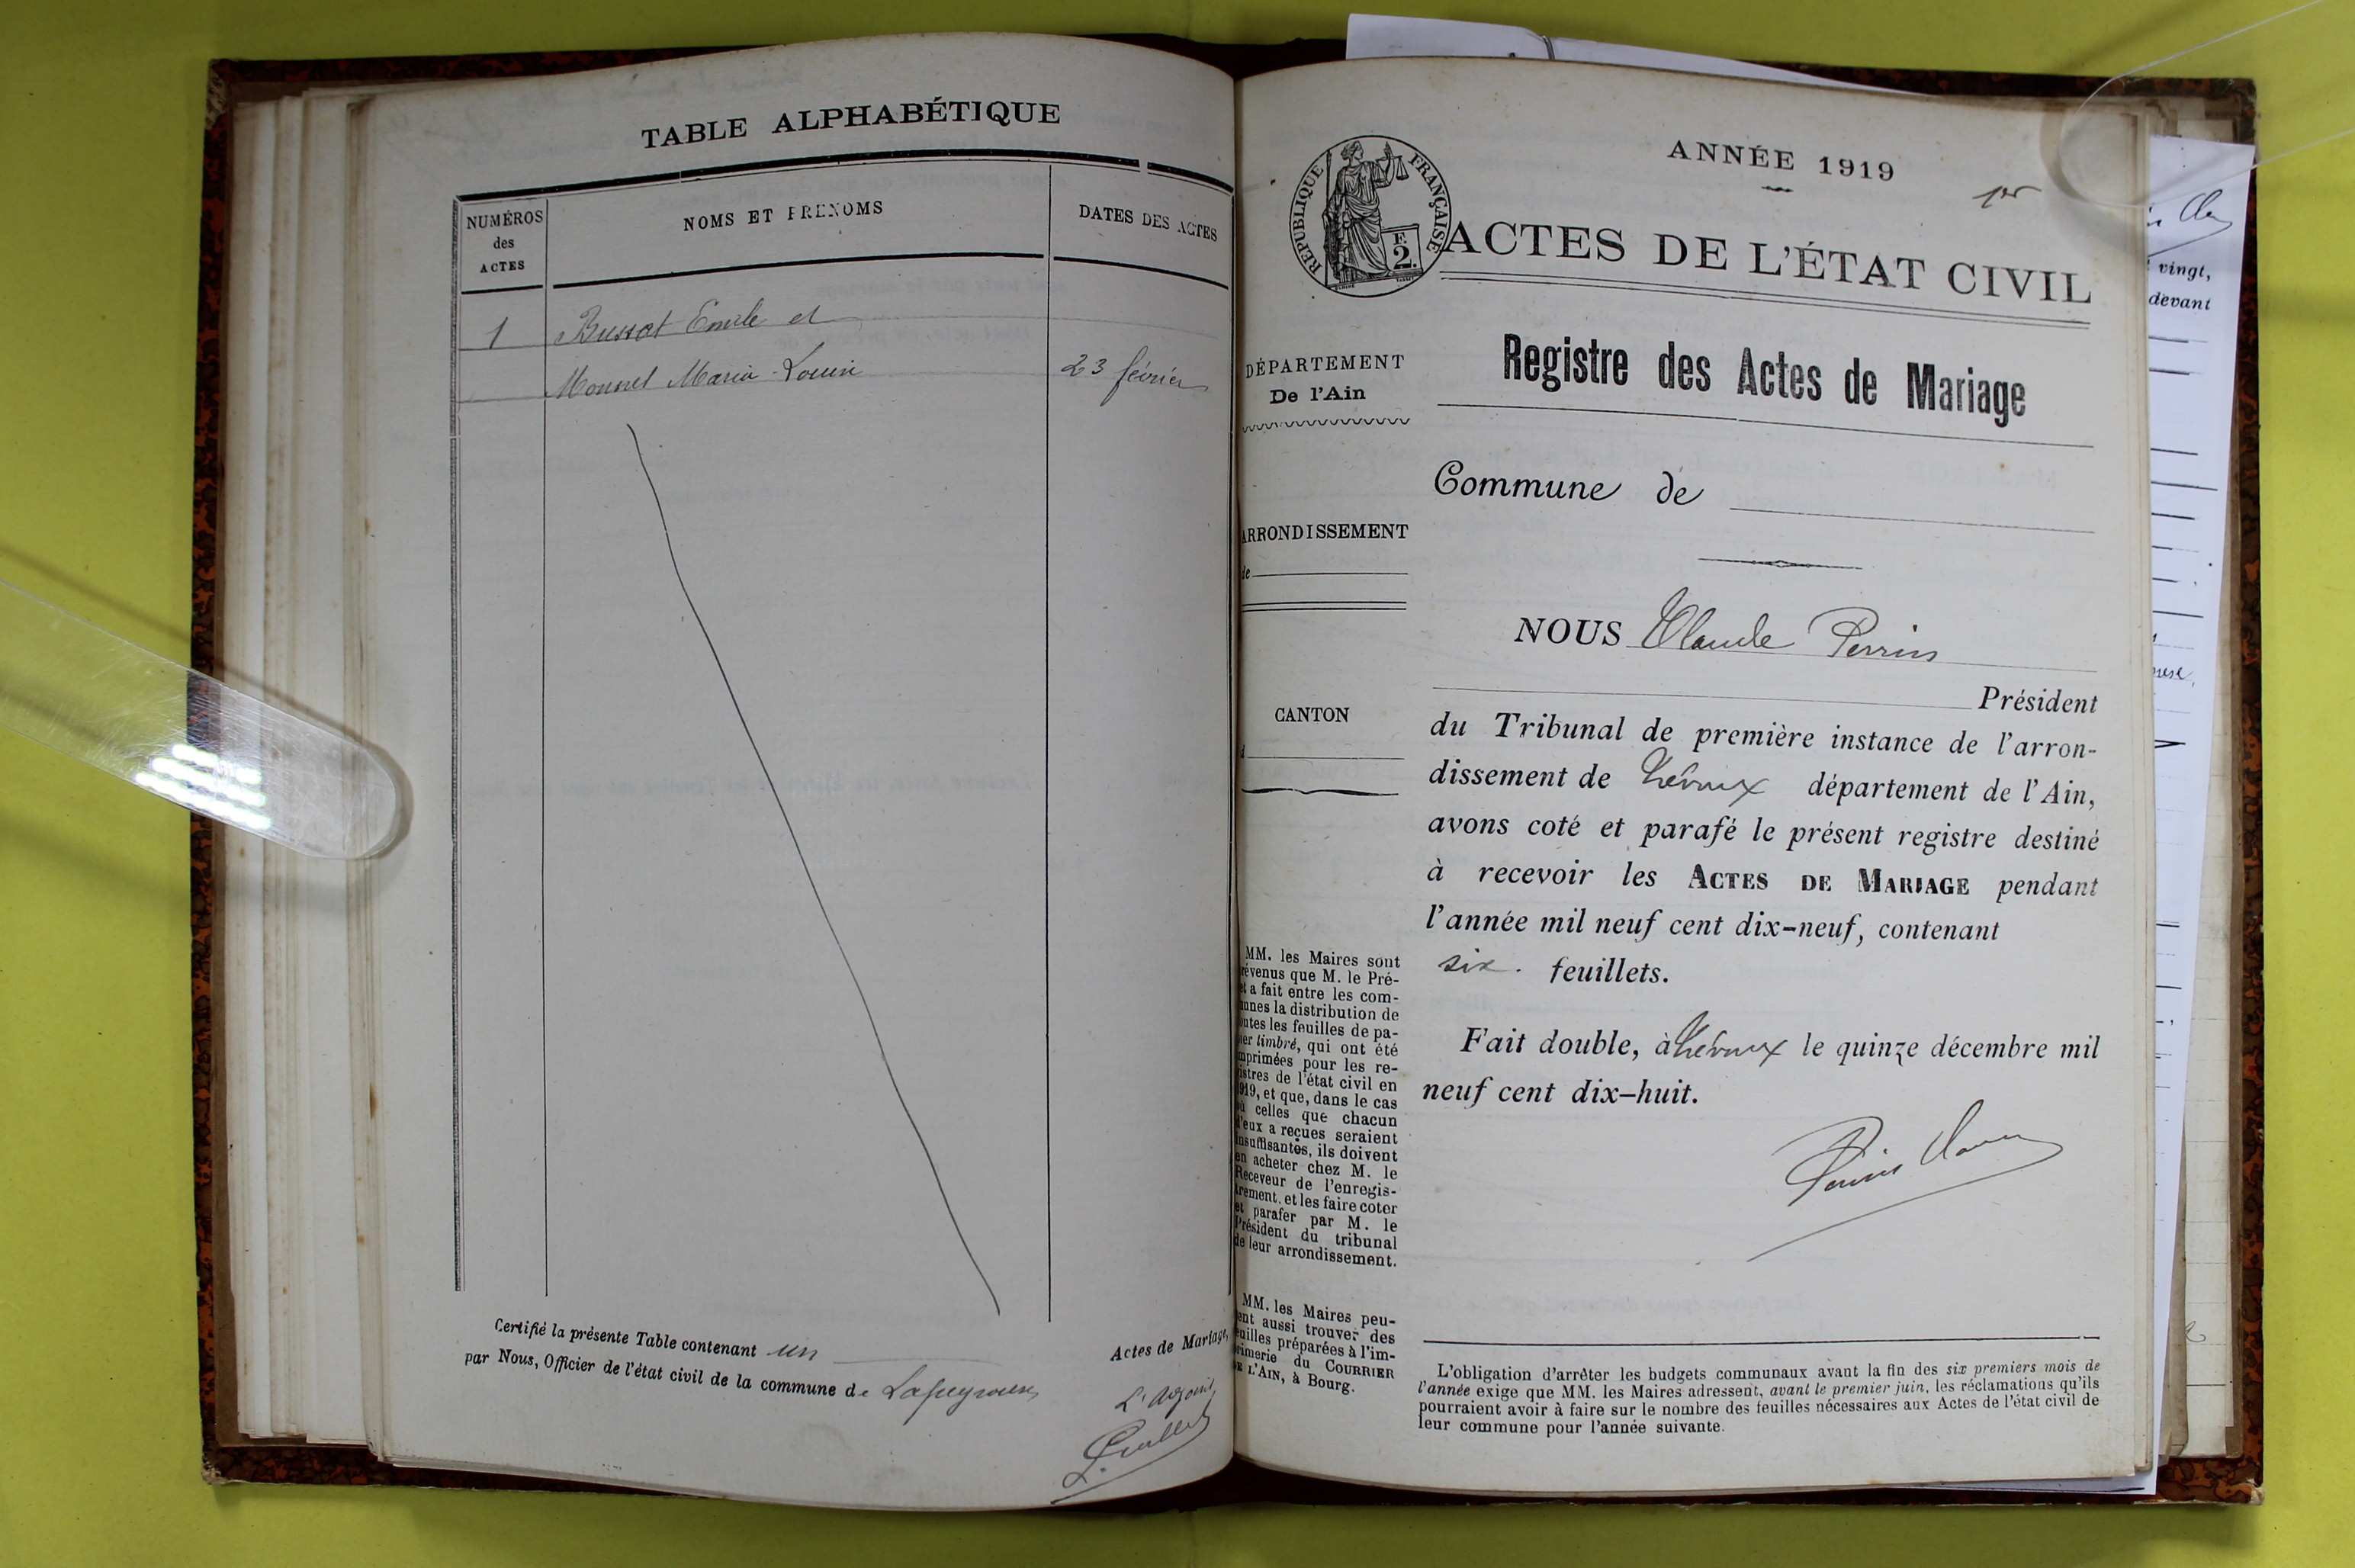 TABLE ALPHABÉTIQUE
NUMÉROS
des
ACTES
NOMS ET PRÉNOMS
DATES DES ACTES
1
Bussot Emile et
Monnet Maria Louise
23 février
Certifié la présente Table contenant un
Actes de Mariage,
par Nous, Officier de l'état civil de la commune de Lapeyrouse
L'adjoint
ANNÉE 1919
1er
RÉPUBLIQUE FRANÇAISE
F.
2.
ACTES DE L'ÉTAT CIVIL
DÉPARTEMENT
De l'Ain
Registre des Actes de Mariage
Commune de
ARRONDISSEMENT
de
CANTON
d
NOUS Claude Perrin
Président
du Tribunal de première instance de l'arron-
dissement de Trévoux département de l'Ain,
avons coté et parafé le présent registre destiné
à recevoir les ACTES DE MARIAGE pendant
l'année mil neuf cent dix-neuf, contenant
six. feuillets.
Fait double, à Trévoux le quinze décembre mil
neuf cent dix-huit.
MM. les Maires sont
révenus que M. le Pré-
et a fait entre les com-
unes la distribution de
outes les feuilles de pa-
ier timbré, qui ont été
mprimées pour les re-
istres de l'état civil en
919, et que, dans le cas
ù celles que chacun
d'eux a reçues seraient
insuffisantes, ils doivent
en acheter chez M. le
Receveur de l'enregis-
trement, et les faire coter
et parafer par M. le
Président du tribunal
de leur arrondissement.
MM. les Maires peu-
ent aussi trouver des
euilles préparées à l'im-
rimerie du COURRIER
DE L'AIN, à Bourg.
L'obligation d'arrêter les budgets communaux avant la fin des six premiers mois de
l'année exige que MM. les Maires adressent, avant le premier juin, les réclamations qu'ils
pourraient avoir à faire sur le nombre des feuilles nécessaires aux Actes de l'état civil de
leur commune pour l'année suivante.
vingt,
devant